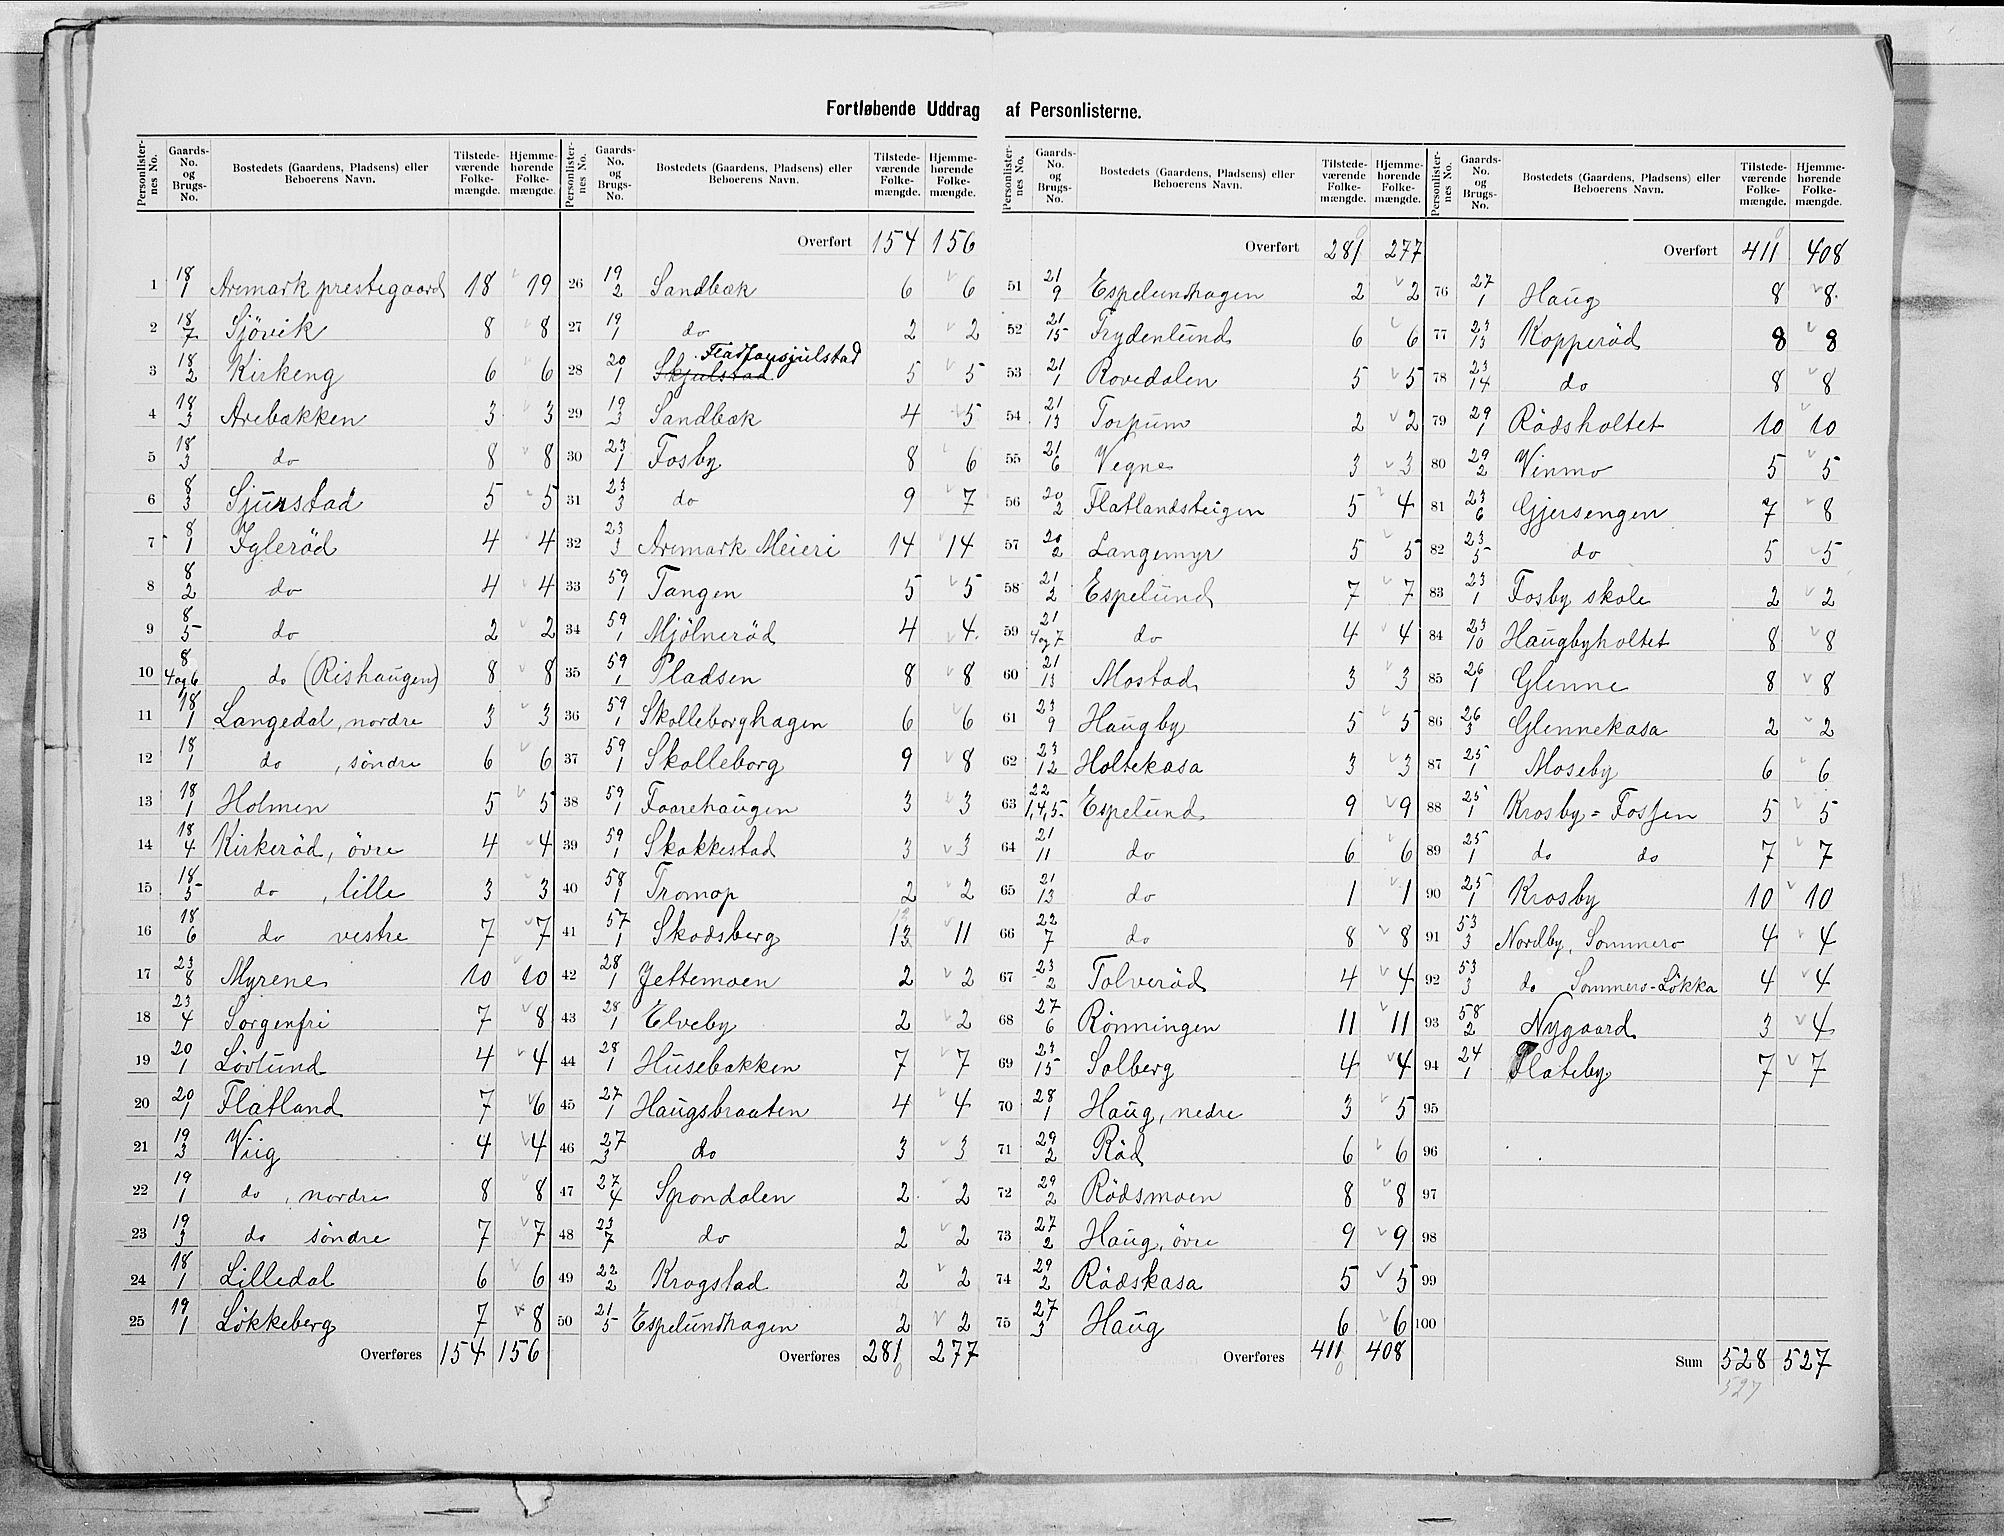 Fortløbende Uddrag af Personlisterne.
Personlisternes No. | Gaards-No. og Brugs-No. | Bostedets (Gaardens, Pladsens) eller Beboerens Navn. | Tilstedeværende Folkemængde. | Hjemmehørende Folkemængde.
1 18/1 Aremark prestegaard 18 19
2 18/7 Sjövik 8 8
3 18/2 Kirkeng 6 6
4 18/3 Arebakken 3 3
5 18/3 do 8 8
6 8/3 Sjurstad 5 5
7 8/1 Iglerød 4 4
8 8/2 do 4 4
9 8/5 do 2 2
10 8/4og6 do (Rishaugen) 8 8
11 18/1 Langedal, nordre 3 3
12 18/1 do , søndre 6 6
13 18/1 Holmen 5 5
14 18/4 Kirkerød, övre 4 4
15 18/5 do , lille 3 3
16 18/6 do vestre 7 7
17 23/8 Myrene 10 10
18 23/4 Sorgenfri 7 8
19 20/1 Lövlund 4 4
20 20/1 Flatland 7 6
21 19/3 Viig 4 4
22 19/1 do , nordre 8 8
23 19/3 do söndre 7 7
24 18/1 Lilledal 6 6
25 19/1 Lökkeberg 7 8
Overføres 154 156
Personlisternes No. | Gaards-No. og Brugs-No. | Bostedets (Gaardens, Pladsens) eller Beboerens Navn. | Tilstedeværende Folkemængde. | Hjemmehørende Folkemængde.
Overført 154 156
26 19/2 Sandbæk 6 6
27 19/1 do 2 2
28 20/1 Skjulstad 5 5
29 19/3 Sandbæk 4 5
30 23/1 Fosby 8 6
31 23/3 do 9 7
32 23/3 Aremark Meieri 14 14
33 59/1 Tangen 5 5
34 59/1 Mjölneröd 4 4
35 59/1 Pladsen 8 8
36 59/1 Skolleborghagen 6 6
37 59/1 Skolleborg 9 8
38 59/1 Faarehaugen 3 3
39 59/1 Skakkestad 3 3
40 58/1 Tromop 2 2
41 57/1 Skodsberg 13 11
42 28/1 Jettemoen 2 2
43 28/1 Elveby 2 2
44 28/1 Husebakken 7 7
45 27/1 Haugsbraaten 4 4
46 27/3 do 3 3
47 27/4 Spondalen 2 2
48 23/7 do 2 2
49 22/2 Krogstad 2 2
50 21/5 Espelundhagen 2 2
Overføres 281 277
0
Personlisternes No. | Gaards-No. og Brugs-No. | Bostedets (Gaardens, Pladsens) eller Beboerens Navn. | Tilstedeværende Folkemængde. | Hjemmehørende Folkemængde.
Overført 281 277
51 21/9 Espelundhagen 2 2
52 21/15 Frydenlund 6 6
53 21/1 Rovedalen 5 5
54 21/13 Torpum 2 2
55 21/6 Vegne 3 3
56 20/2 Flatlandsteigen 5 4
57 20/2 Langemyr 5 5
58 21/2 Espelund 7 7
59 21/4og7 do 4 4
60 21/13 Mostad 3 3
61 23/9 Haugby 5 5
62 23/12 Holtekasa 3 3
63 22/1,4,5 Espelund 9 9
64 21/11 do 6 6
65 21/13 do 1 1
66 22/7 do 8 8
67 23/2 Tolveröd 4 4
68 27/6 Rönningen 11 11
69 23/15 Solberg 4 4
70 28/1 Haug, nedre 3 5
71 29/2 Röd 6 6
72 29/2 Rödsmoen 8 8
73 27/2 Haug, övre 9 9
74 29/2 Rödskasa 5 5
75 27/3 Haug 6 6
Overføres 411 408
0
Personlisternes No. | Gaards-No. og Brugs-No. | Bostedets (Gaardens, Pladsens) eller Beboerens Navn. | Tilstedeværende Folkemængde. | Hjemmehørende Folkemængde.
Overført 411 408
76 27/1 Haug 8 8
77 23/13 Kopperöd 8 8
78 23/14 do 8 8
79 29/1 Rödsholtet 10 10
80 29/2 Vinmo 5 5
81 23/6 Gjersengen 7 8
82 23/5 do 5 5
83 23/1 Fosby skole 2 2
84 23/10 Haugbyholtet 8 8
85 26/1 Glenne 8 8
86 26/3 Glennekasa 2 2
87 25/1 Moseby 6 6
88 25/1 Krosby=Fossen 5 5
89 25/1 do do 7 7
90 25/1 Krosby 10 10
91 53/3 Nordby, Sommero 4 4
92 53/3 do Sommero-Lökka 4 4
93 58/2 Nygaard 3 4
94 24/1 Flateby 7 7
95
96
97
98
99
100
Sum 528 527
527